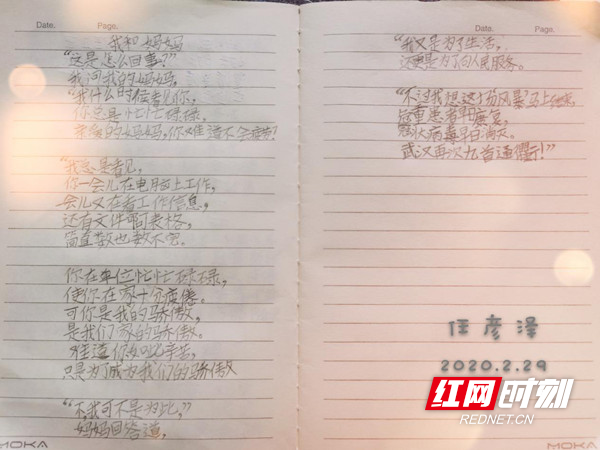 Date. Page.
我和妈妈
“这是怎么回事?”
我问我的妈妈,
“我什么时候看见你,
你总是忙忙碌碌,
亲爱的妈妈,你难道不会疲劳?
“我总是看见,
你一会儿在电脑上工作,
一会儿又在看工作信息,
还有文件啊表格,
简直数也数不完。
你在单位忙忙碌碌,
使你在家十分疲倦。
可你是我的骄傲,
是我们家的骄傲。
难道你如此辛苦,
只是为了成为我们的骄傲
“不,我可不是为此,”
妈妈回答道,
MOKA
Date. Page.
“我又是为了生活,
这更是为了向人民服务。
“不过我想这十场风暴马上结束,
危重患者早康复,
冠状病毒早日消灭。
武汉再次九省通衢!”
任彦泽
2020.2.29
红网时刻
REDNET.CN
MOKA